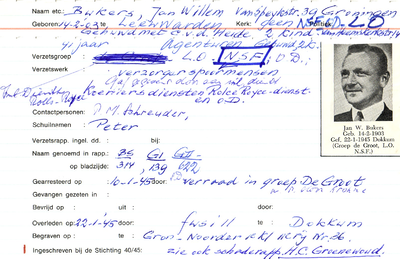 Naam etc.: Bukers, Jan Willem van Speykstr. 39 Groningen
Geboren: 14-2-03 te Leeuwarden Kerk: geen N.S.F. O.D. L.O.
Gehuwd met G. v.d. Heide. 2 kind.
41 jaar
Verzetsgroep: L.O. N.S.F. O.D.
Verzetswerk: verzorger spoormensen
Koeriersdiensten Rolce Royce-dienst
en O.D.
Contactpersonen: J. M. Schreuder,
Schuilnamen Peter
Verzetsrapp. ingel. dd. : bij:
Naam genoemd in rapp.: G1 GII
op bladzijde : 314, 139 622
Gearresteerd op :10-1-'45 verraad in groep De Groot
Gevangen gezeten in :
Bevrijd op : uit door:
Overleden op :22-1-'45 door: fusill te Dokkum
Begraven op : te Gron- Noorder
Ingeschreven bij de Stichting 40/45: zie ook H.C. Groenewoud.
Jan W. Bukers
Geb. 14-2-1903
Gef. 22-1-1945 Dokkum
(Groep de Groot, L.O.
N.S.F.)